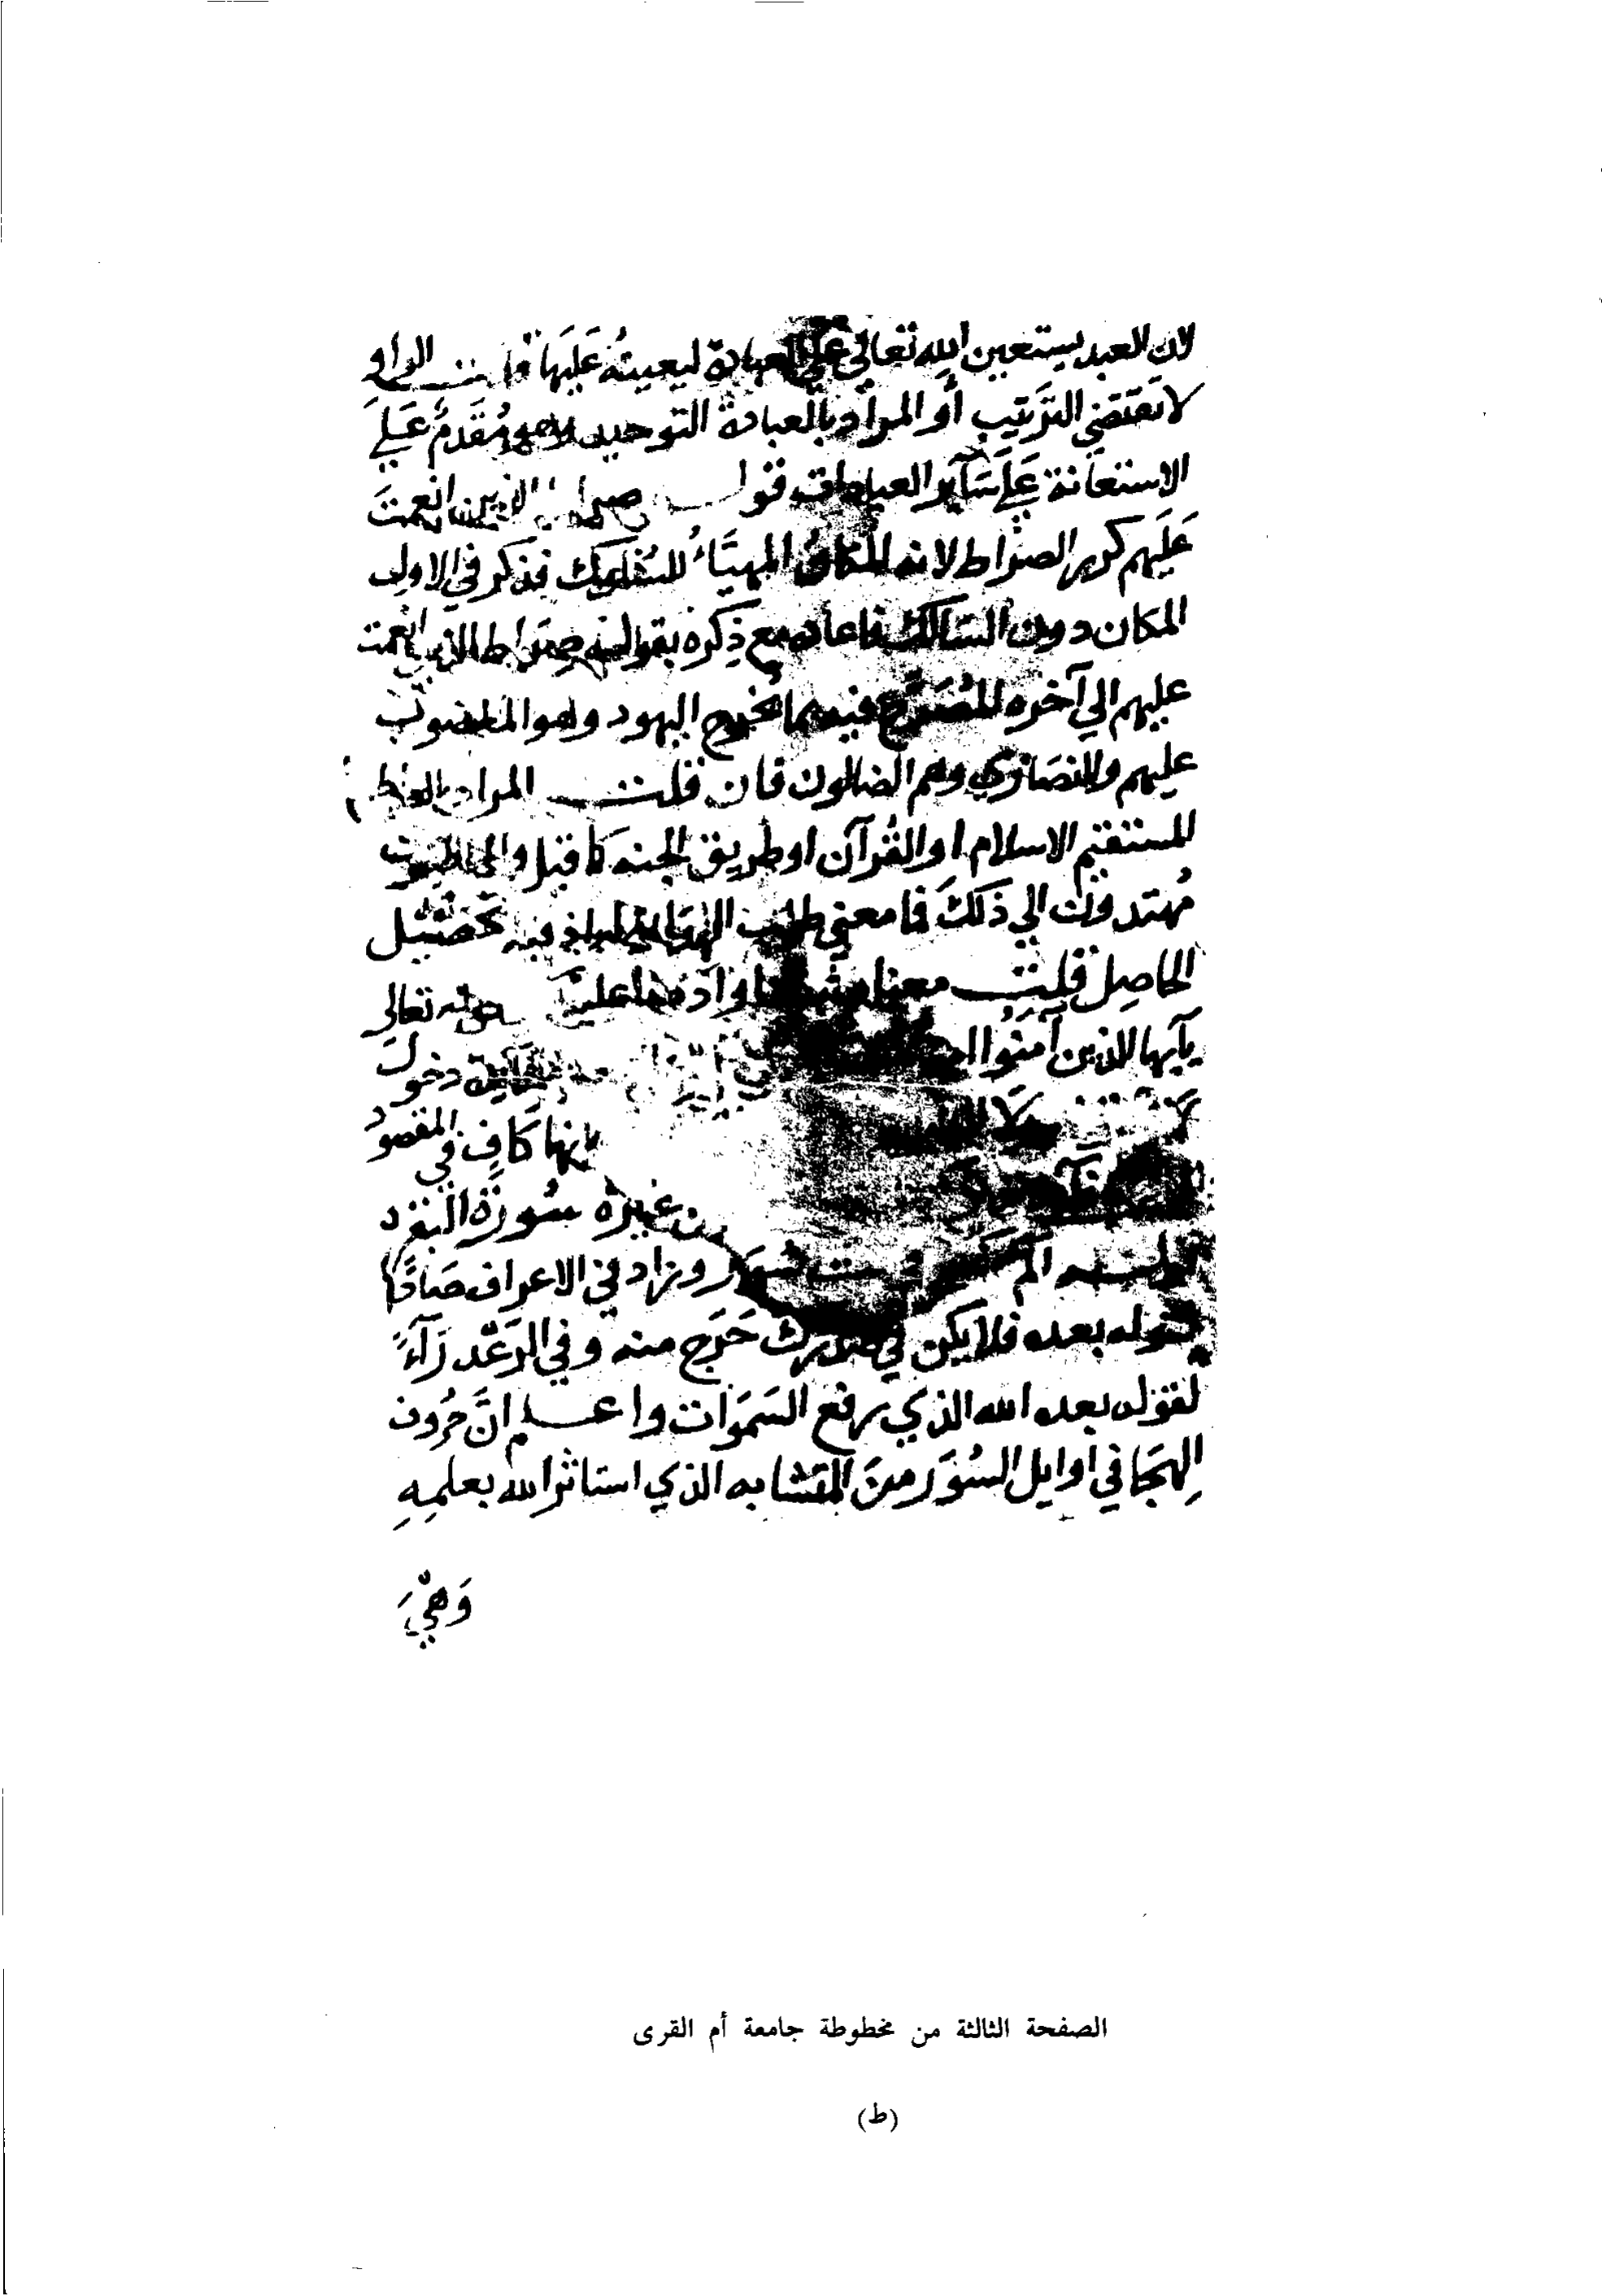 لان العبد يستعين الله تعالى على العبادة ليعينه عليها قلت الواو
لا تقتضي الترتيب أو المراد بالعبادة التوحيد وهو مقدم علي
الاستعانة علي سآير العبادات قوله صراط الذين انعمت
عليهم كرر الصراط لانه المكان المهيأ للسلوك فذكر في الاول
المكان دون السالك فاعاده مع ذكره بقوله صراط الذين انعمت
عليهم الي آخره المصرح فيه بما يخرج اليهود وهو المغضوب
عليهم والنصاري وهم الضالون فان قلت المراد بالصراط
المستقيم الاسلام او القرآن او طريق الجنه كما قيل والمؤمنون
مهتدون الي ذلك فما معني طلب الهداية لذلك اذ فيه تحصيل
الحاصل قلت معناه ثبتنا وأدمنا عليه تعالى
يآيها الذين آمنوا دخول
لا
بانها كاف في المقصود
من غيره سورة البقرة
قوله الم ست سور وزاد في الاعراف صادًا
لقوله بعده فلا يكن في صدرك حرج منه وفي الرعد رآءً
لقوله بعده الله الذي رفع السموات واعلم ان حروف
الهجا في اوايل السور من المتشابه الذي استاثر الله بعلمه
وهي
الصفحة الثالثة من مخطوطة جامعة أم القرى
(ط)